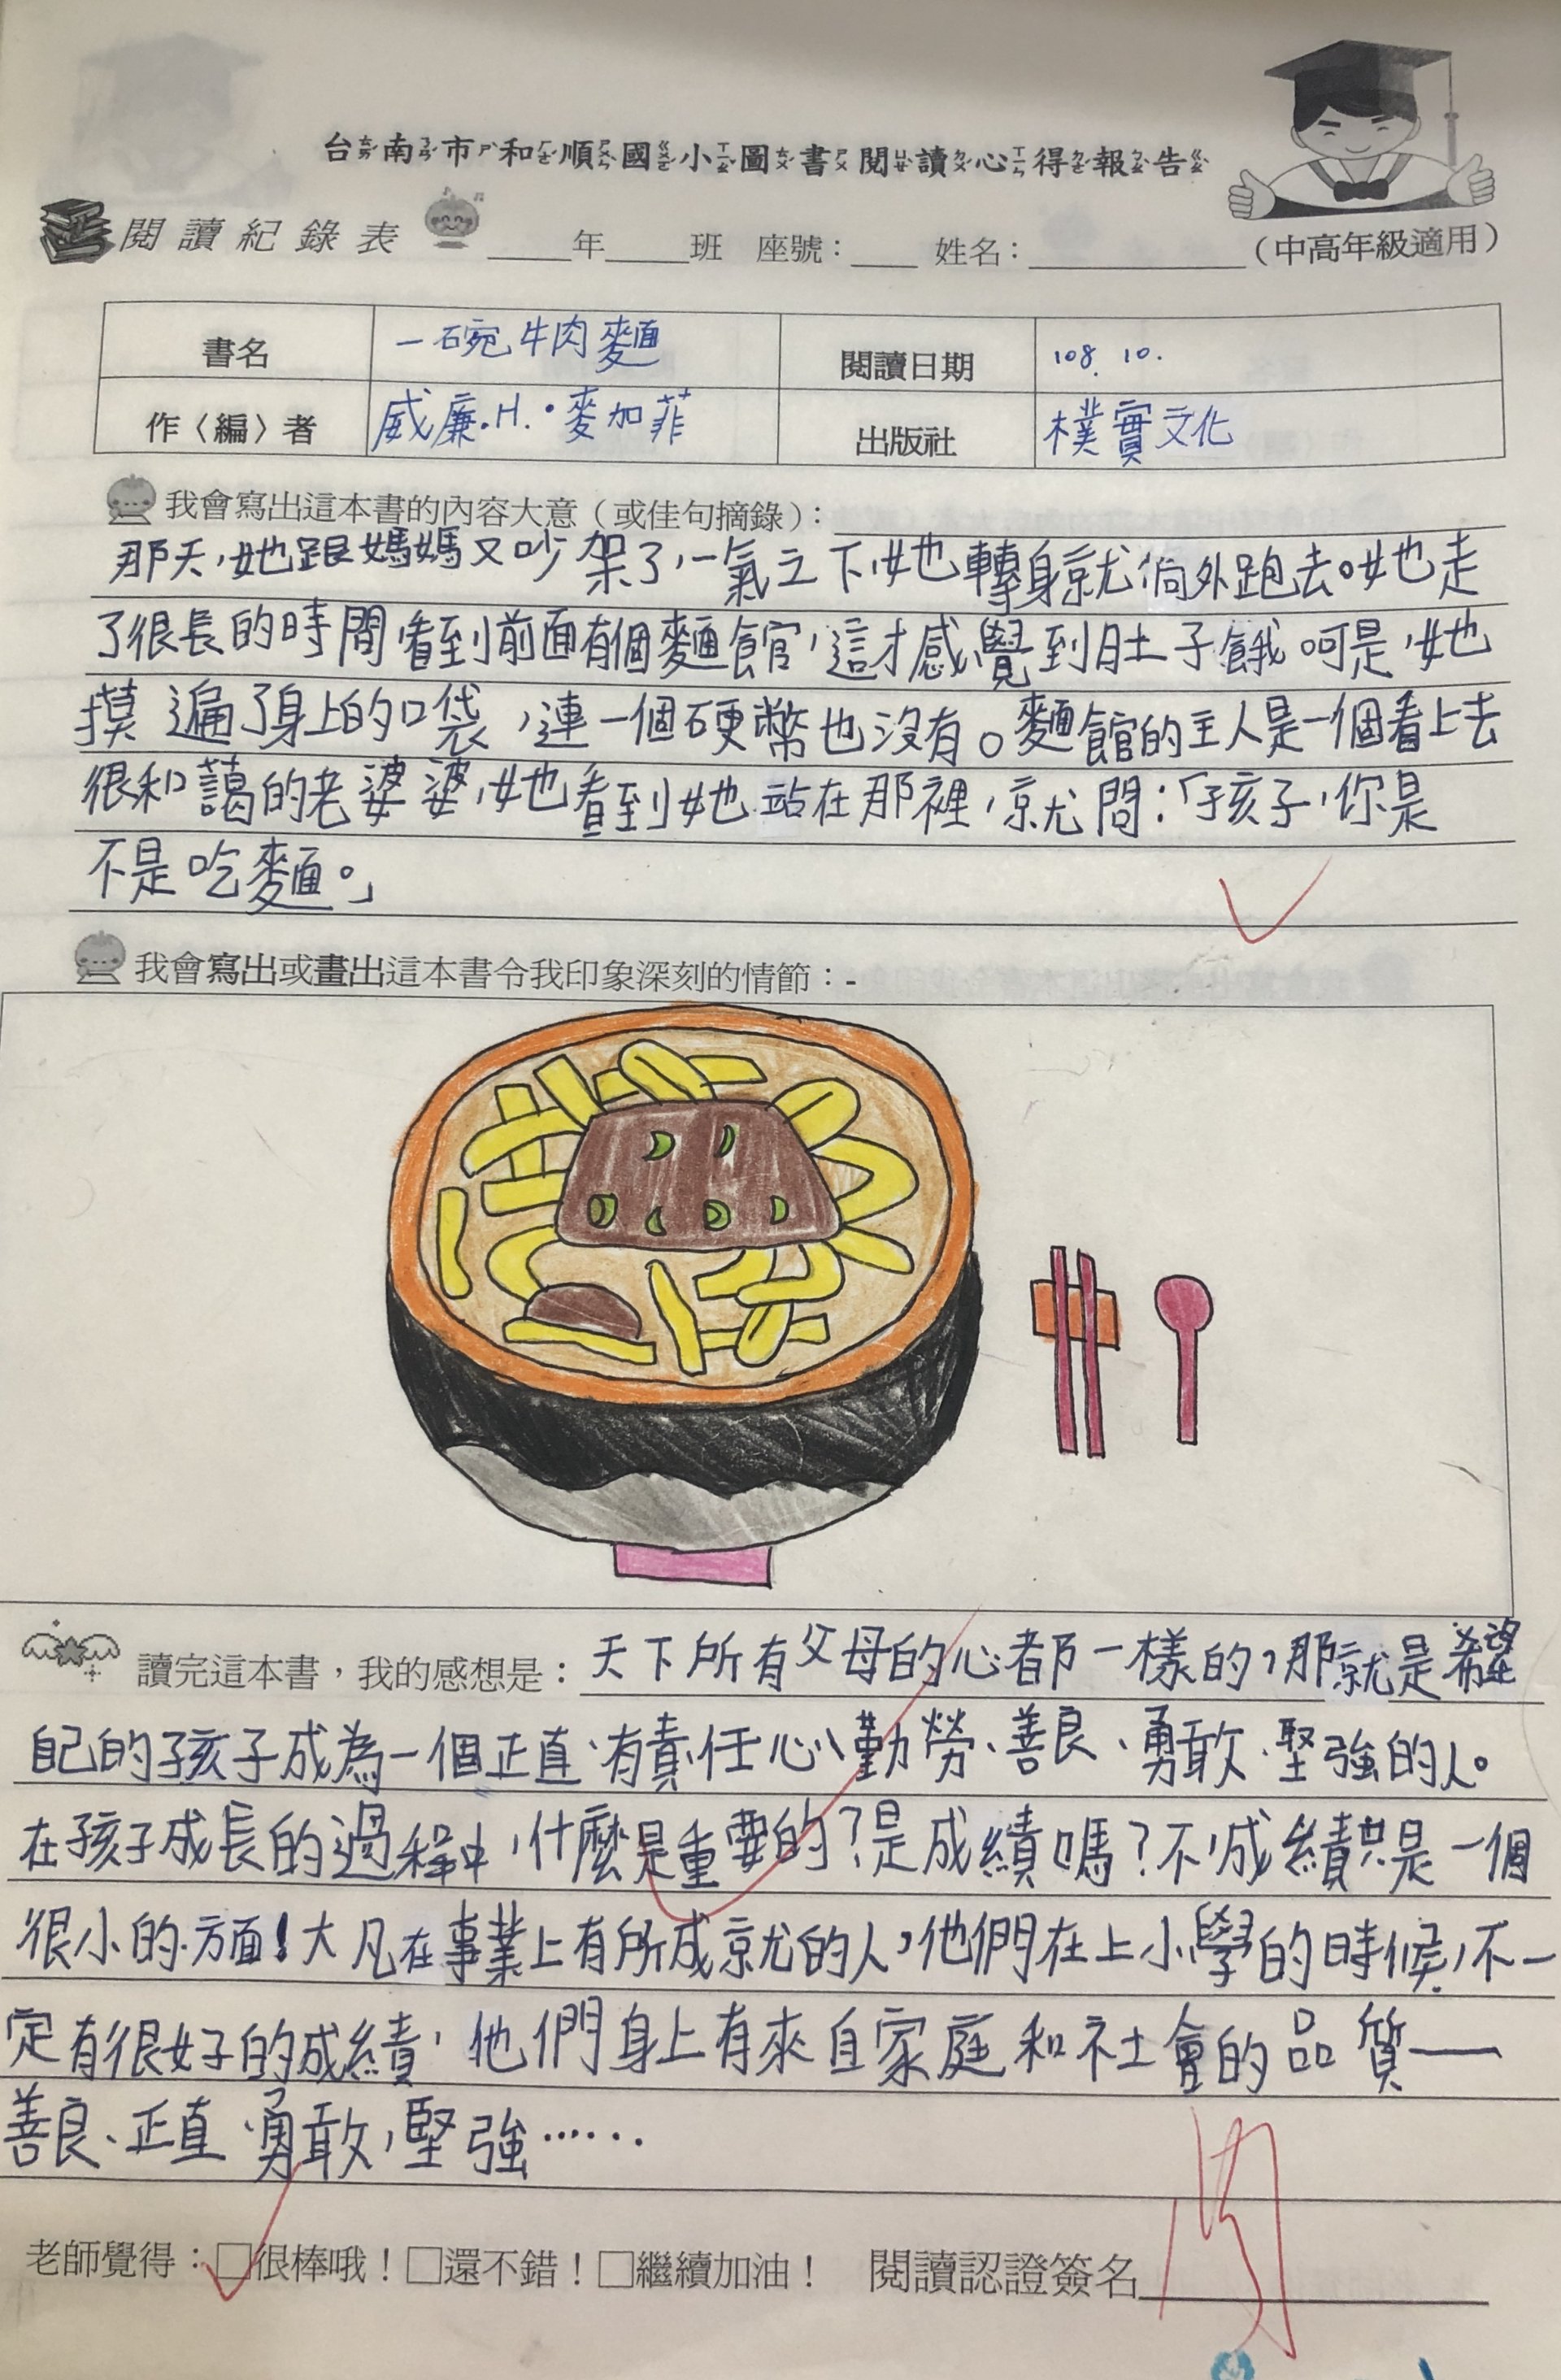 台南市和順國小圖書閱讀心得報告
閱讀紀錄表 ____年____班 座號：____ 姓名：__________（中高年級適用）
書名 一碗牛肉麵 閱讀日期 108.10.
作〈編〉者 威廉.H.·麥加菲 出版社 樸實文化
我會寫出這本書的內容大意（或佳句摘錄）：
那天，她跟媽媽又吵架了，一氣之下，她轉身就向外跑去。她走
了很長的時間，看到前面有個麵館，這才感覺到肚子餓。可是，她
摸遍了身上的口袋，連一個硬幣也沒有。麵館的主人是一個看上去
很和藹的老婆婆，她看到她站在那裡，就問：「孩子，你是
不是吃麵。」
我會寫出或畫出這本書令我印象深刻的情節：-
讀完這本書，我的感想是：天下所有父母的心都一樣的，那就是希望
自己的孩子成為一個正直、有責任心、勤勞、善良、勇敢、堅強的人。
在孩子成長的過程中，什麼是重要的？是成績嗎？不，成績只是一個
很小的方面！大凡在事業上有所成就的人，他們在上小學的時候，不一
定有很好的成績，他們身上有來自家庭和社會的品質——
善良、正直、勇敢，堅強……
老師覺得：□很棒哦！□還不錯！□繼續加油！ 閱讀認證簽名